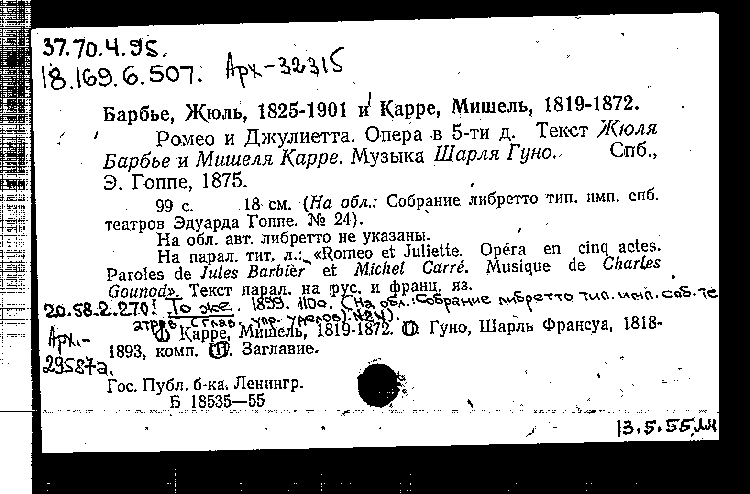 37.70.4.95.
18.169.6.507. Арх-32315
Барбье, Жюль, 1825-1901 и Карре, Мишель, 1819-1872.
Ромео и Джулиетта. Опера в 5-ти д. Текст Жюля
Барбье и Мишеля Карре. Музыка Шарля Гуно. Спб.,
Э. Гоппе, 1875.
99 с. 18 см. (На обл.: Собрание либретто тип. имп. спб.
театров Эдуарда Гоппе. № 24).
На обл. авт. либретто не указаны.
На парал. тит. л.: «Romeo et Juliette. Opéra en cinq actes.
Paroles de Jules Barbier et Michel Carré. Musique de Charles
Gounod». Текст парал. на рус. и франц. яз.
20.58.2.270: То же. 1899. (На обл.: Собрание либретто тип. имп. спб. те
атров. (Глав. упр. уделов). №24).
I Карре, Мишель, 1819-1872. II Гуно, Шарль Франсуа, 1818-
Арх.-
1893, комп. III. Заглавие.
29587а.
Гос. Публ. б-ка. Ленингр.
Б 18535—55
13.5.55